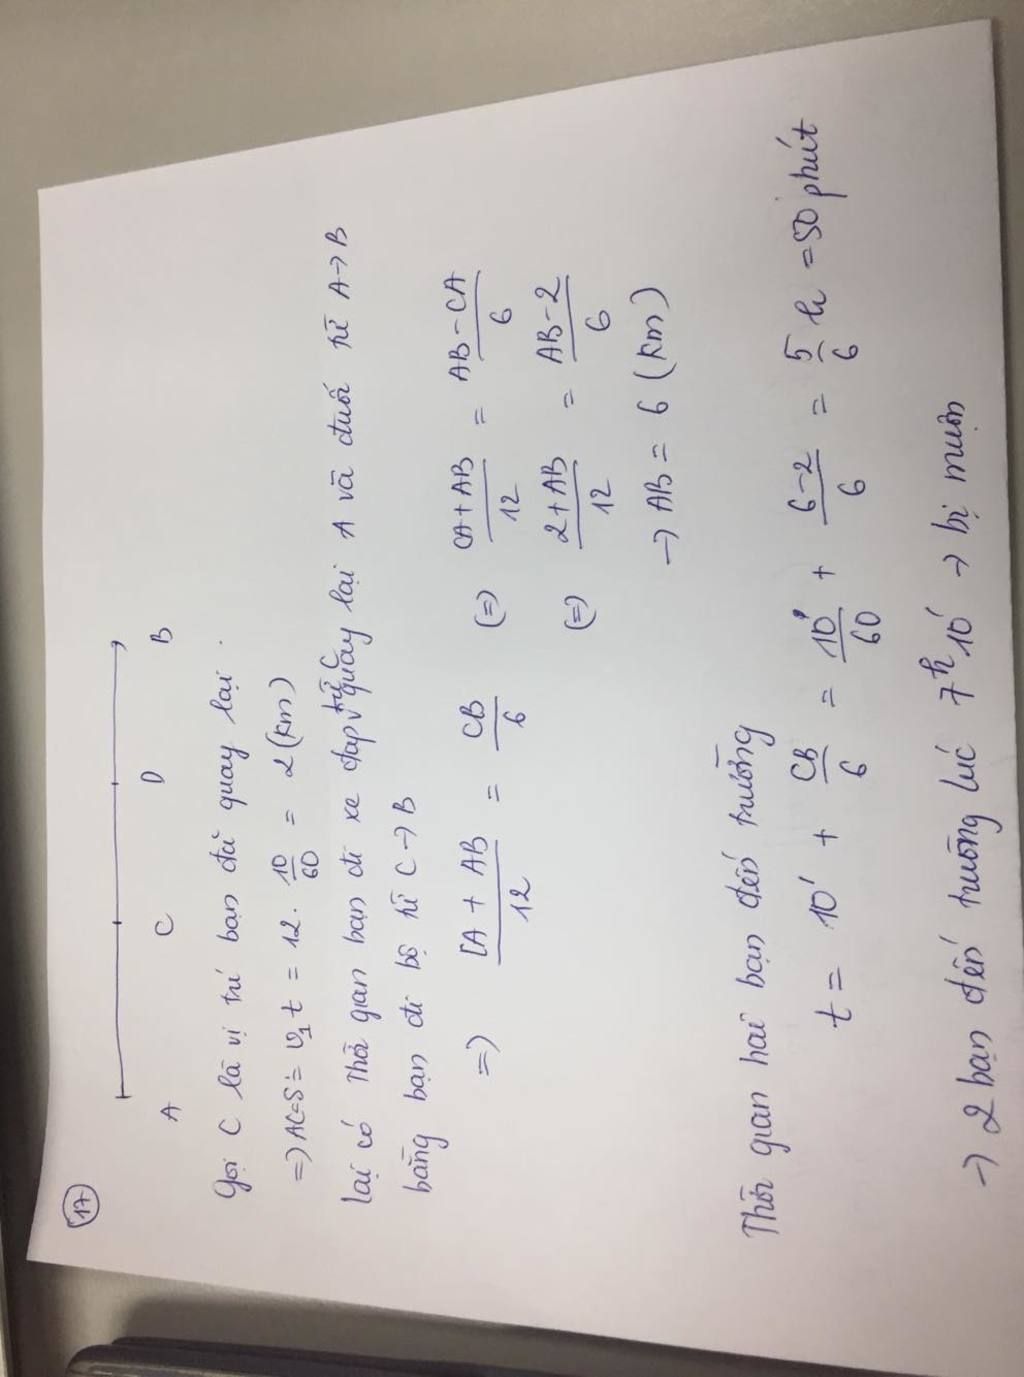 17
A C D B
Gọi C là vị trí bạn đi quay lại.
=) AC = S = v₁t = 12 . 10/60 = 2 (km)
lại có Thời gian bạn đi xe đạp từ C quay lại A và đuổi kĩ A→B
bằng bạn đi bộ kĩ C→B
=) (CA + AB)/12 = CB/6 (=) (CA + AB)/12 = (AB - CA)/6
(=) (2 + AB)/12 = (AB - 2)/6
→ AB = 6 (km)
Thời gian hai bạn đến trường
t = 10' + CB/6 = 10'/60 + (6-2)/6 = 5/6 h = 50 phút
→ 2 bạn đến trường lúc 7h10' → bị muộn